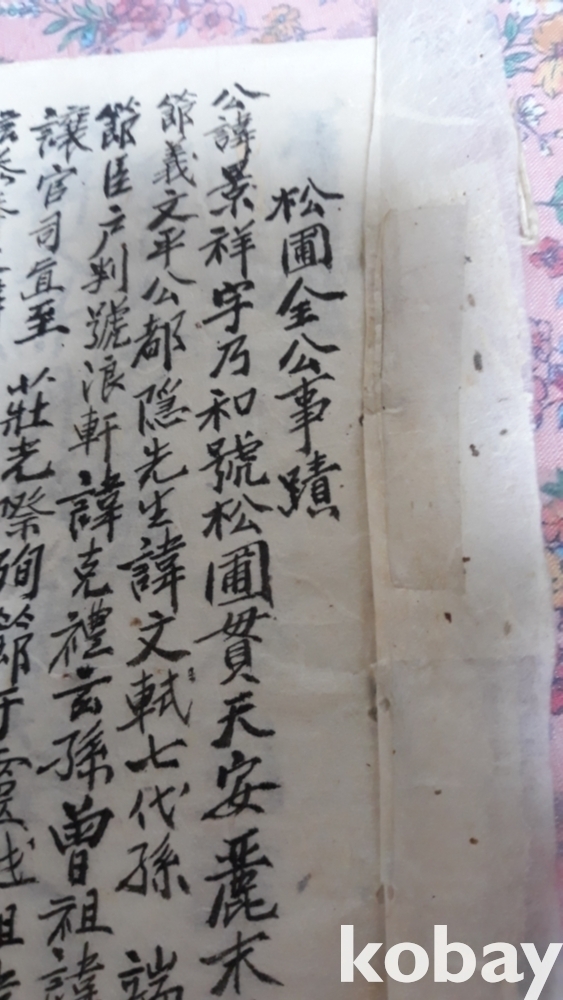 松圃全公事蹟
公諱景祥字乃和號松圃貫天安麗末
節義文平公都隠先生諱文軾七代孫 端
節臣戶判號浪軒諱克禮玄孫曾祖諱
讓官司直至 莊光際殉節于
kobay